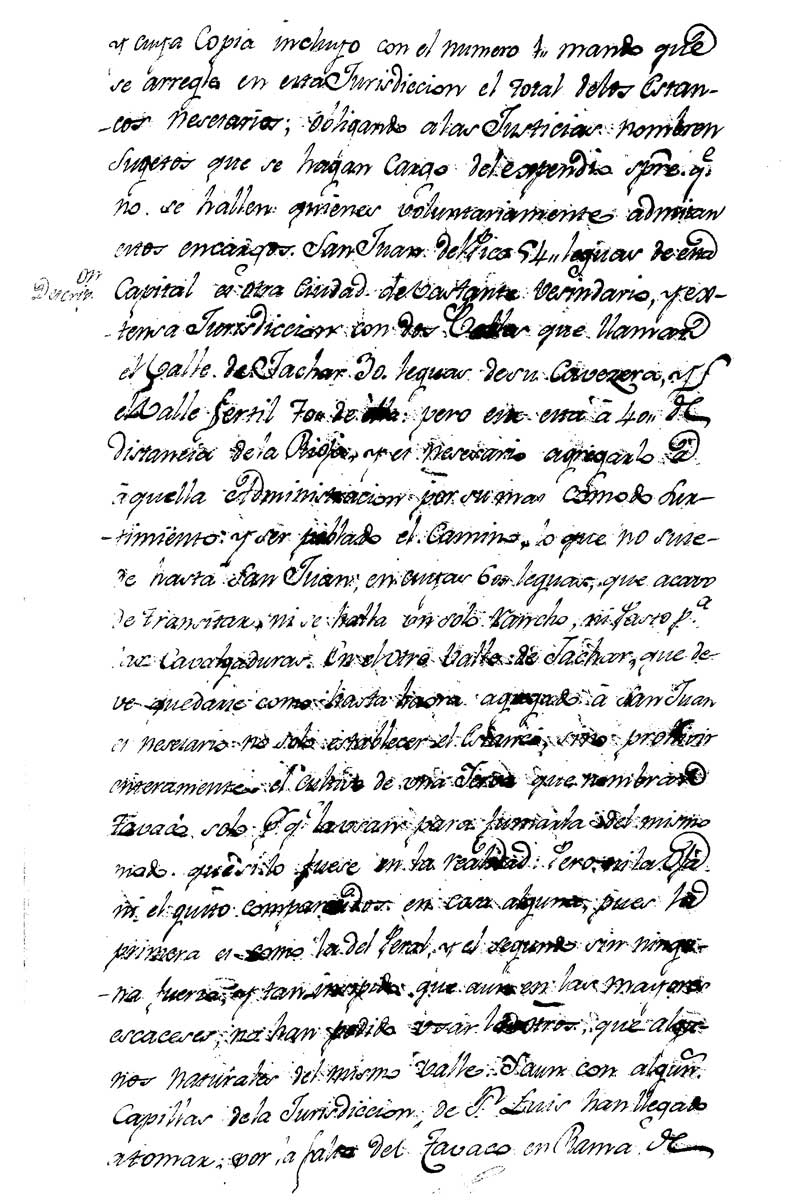 y cuya Copia incluyo con el numero 1,, mando que
se arregle en esta Jurisdiccion el total delos Estan-
-cos nesesarios; obligando alas Justicias nombren
Sugetos que se hagan cargo del espendio spre. qe.
no se hallen quienes voluntariamente admitan
estos encargos. San Juan del Pico 54,, leguas de esta
Descripon.
Capital es otra Ciudad de bastante Vesindario, y ex-
-tensa Jurisdiccion con dos Valles que llaman
el Valle de Jachar 30. leguas de su Cavezera, y
el Valle fertil 70,, de ella: pero este está á 40,, de
distancia de la Rioja, y es nesesario agregarlo á
aquella Administracion por su mas comodo sur-
-timiento: y ser poblado el Camino, lo que no suce-
de hasta San Juan; en cuyas 60,, leguas, que acavo
de transitar, ni se halla un solo Rancho, ni Pasto pa.
las Cavalgaduras. En el otro Valle de Jachar, que de-
ve quedarse como hasta haora agregado á San Juan
es nesesario no solo establecer el Estanco, sino prohivir
enteramente el cultivo de una Yerva que nombran
Tavaco solo pr. qe. la usan para fumarla del mismo
modo que si lo fuese en la realidad: Pero ni la Oja
ni el gusto comparados en cosa alguna, pues la
primera es como la del Peral, y el segundo sin ningu-
-na fuerza, y tan insipido que aun en las mayores
escaceses, no han podido usar los otros, que algu-
nos naturales del mismo Valle. Y aun con algun.
Capillas de la Jurisdiccion de Sn. Luis han llegado
a tomar, por la falta del Tavaco en Rama de